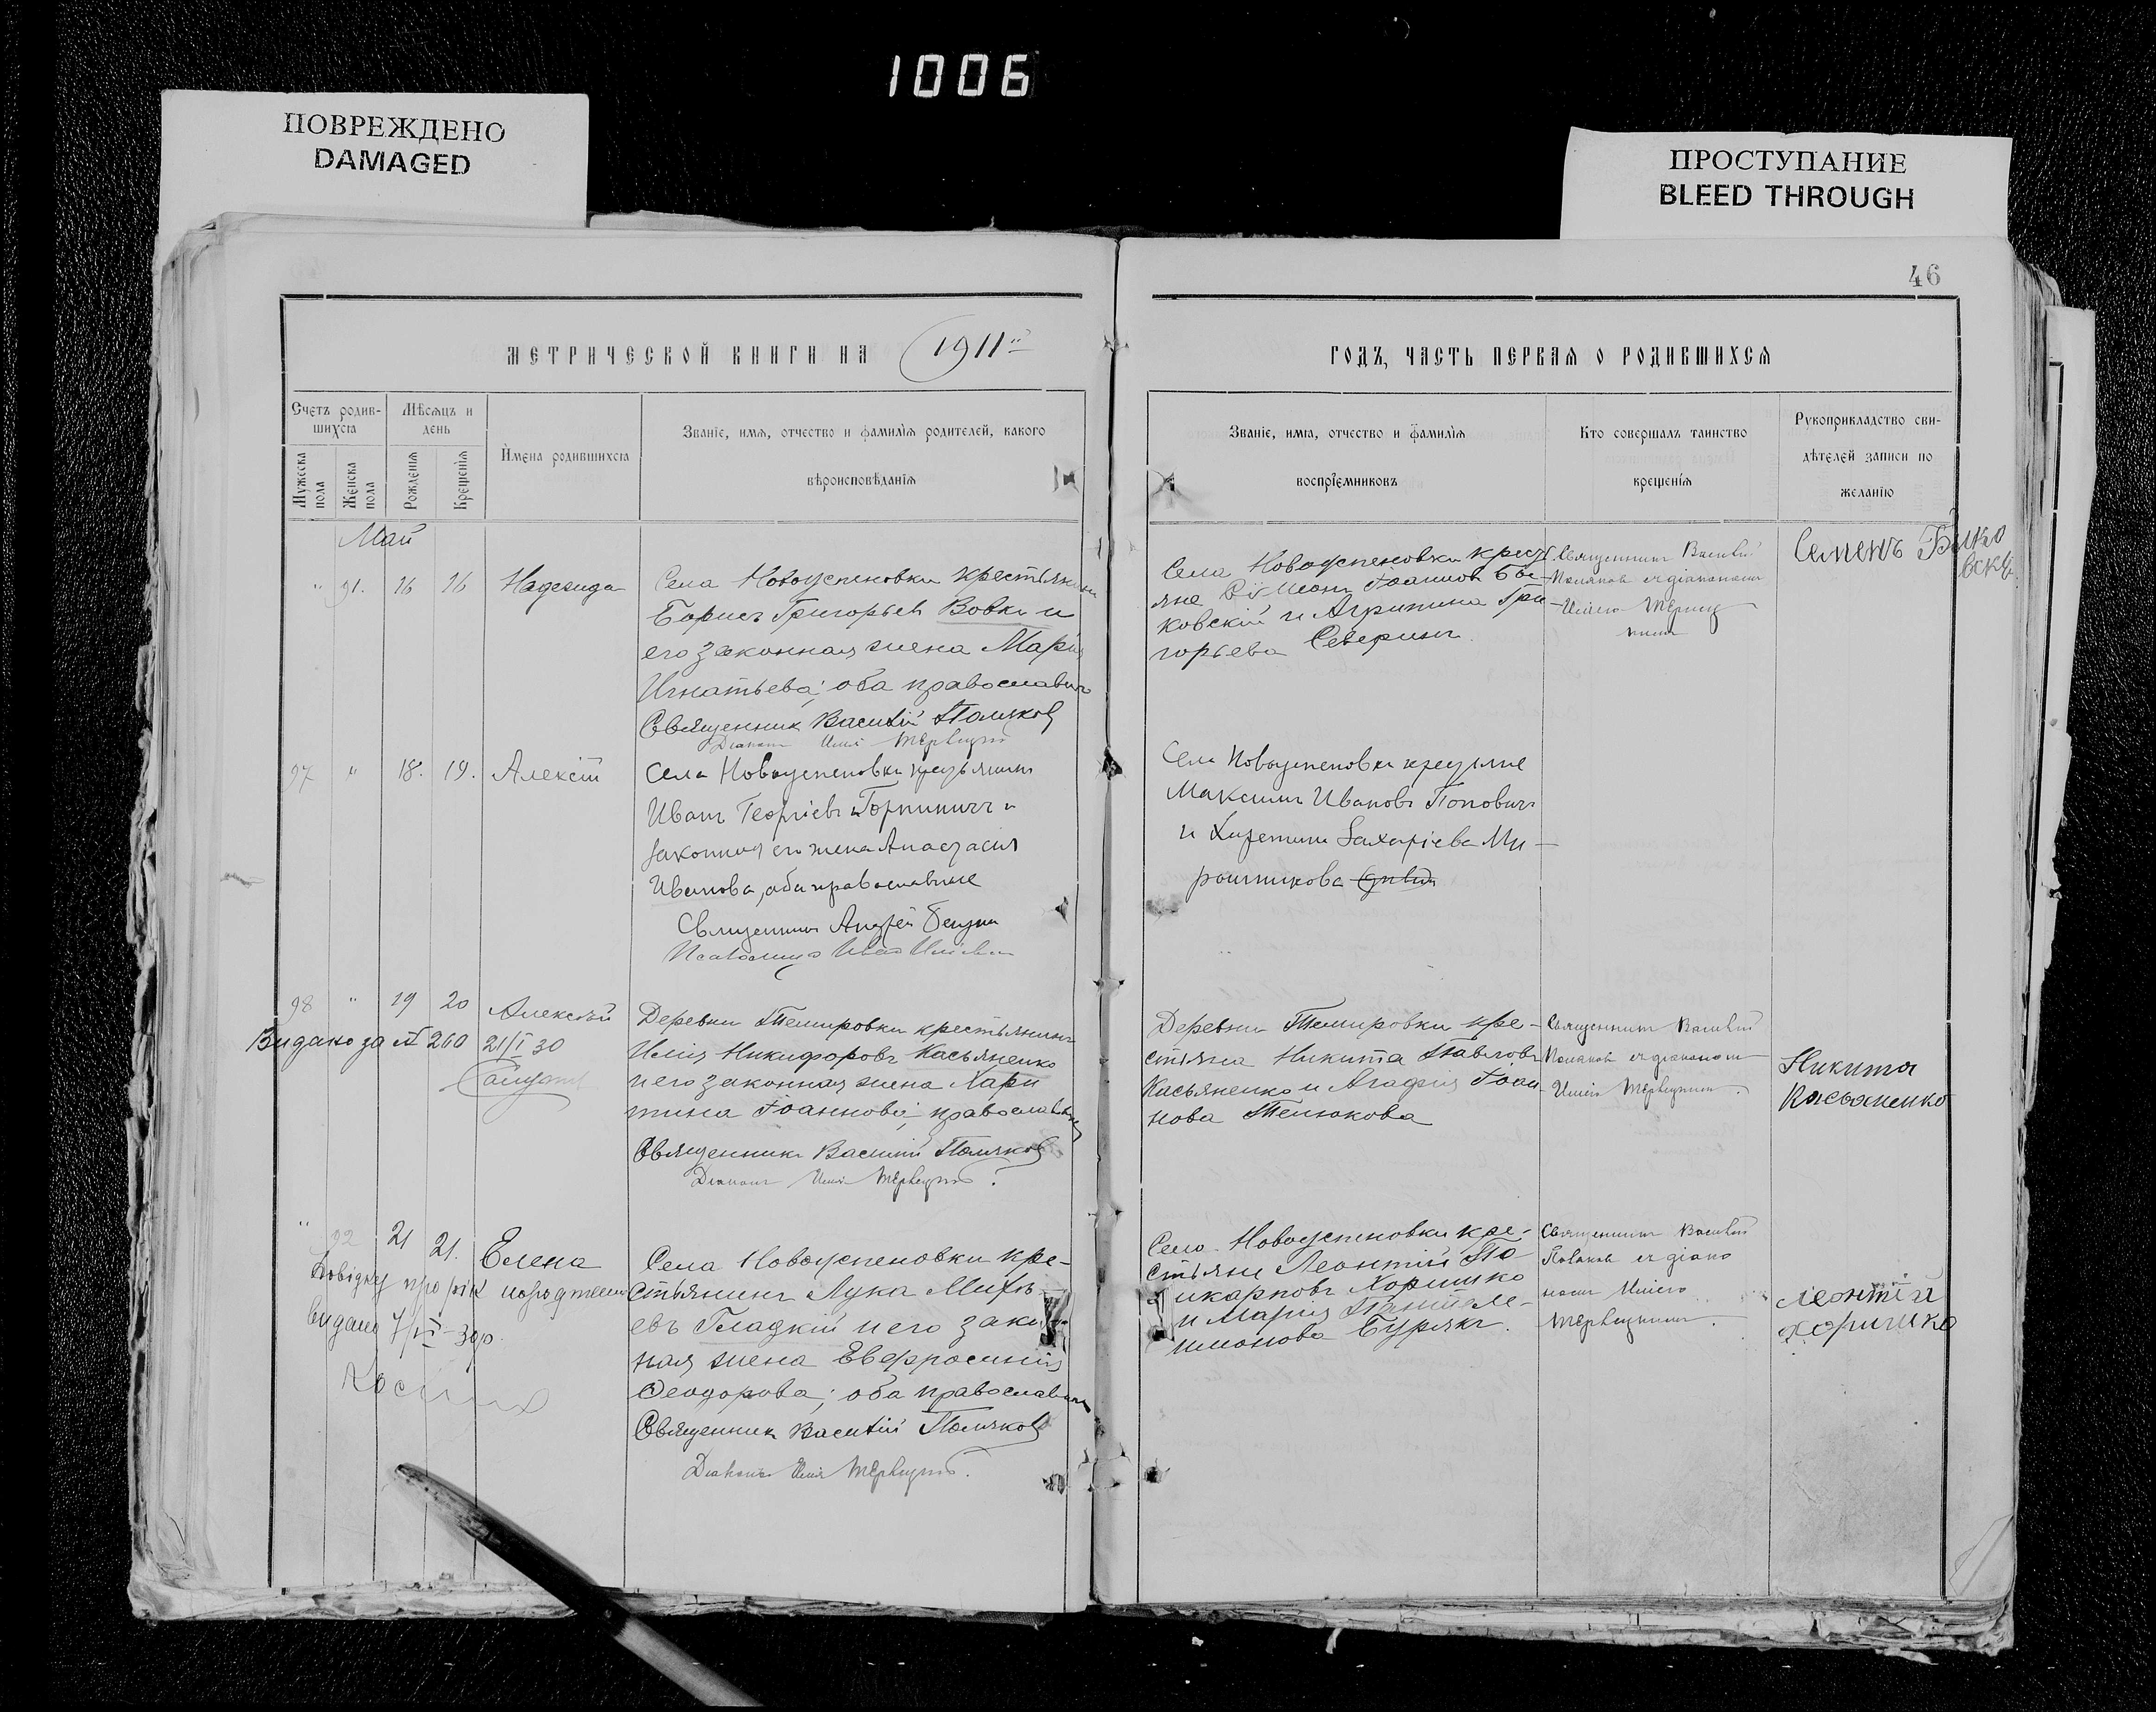 1006
ПОВРЕЖДЕНО
DAMAGED
ПРОСТУПАНИЕ
BLEED THROUGH
МЕТРИЧЕСКОЙ КНИГИ НА 1911
Счетъ родив-
шихся
Мѣсяцъ и
день
Мужеска
пола
Женска
пола
Рожденія
Крещенія
Имена родившихся
Званіе, имя, отчество и фамилія родителей, какого
вѣроисповѣданія
Май
" 91. 16 16 Надежда
Села Новоуспеновки крестьянинъ
Борисъ Григорьевъ Вовкъ и
его законная жена Марія
Игнатьева; оба православные
Священникъ Василій Поляковъ
Діаконъ Илія
97 " 18. 19. Алексій
Села Новоуспеновки крестьянинъ
Иванъ Георгіевъ Горпиничъ и
законная его жена Анастасія
Иванова, оба православные
Священникъ Андрей
Псаломщикъ Иванъ
98 " 19 20 Алексѣй
Видано за № 260 21/I 30
Деревни Темировки крестьянинъ
Илія Никифоровъ Касьяненко
и его законная жена Хари
тина Іоаннова; православные
Священникъ Василій Поляковъ
Діаконъ Илія
" 92 21 21. Елена
Довідку про рік народження
видано 7/VI-30р.
Села Новоуспеновки кре-
стьянинъ Лука Михѣ-
евъ Гладкій и его закон-
ная жена Евфросинія
Ѳеодорова; оба православные
Священникъ Василій Поляковъ
Діаконъ Илія
46
ГОДЪ, ЧАСТЬ ПЕРВАЯ О РОДИВШИХСЯ
Званіе, имя, отчество и фамилія
воспріемниковъ
Кто совершалъ таинство
крещенія
Рукоприкладство сви-
дѣтелей записи по
желанію
Села Новоуспеновки крест
яне Сѵмеонъ Іоанновъ Бы-
ковскій и Агрипина Гри-
горьева Северинъ
Священникъ Василій
Поляковъ съ діакономъ
Иліею
Семенъ Бико
вски
Села Новоуспеновки крестьяне
Максимъ Ивановъ Поповичъ
и Захаріева Ми-
рошникова
Деревни Темировки кре-
стьяне Никита Павловъ
Касьяненко и Агафія Іоан-
нова Телюкова
Священникъ Василій
Поляковъ съ діакономъ
Иліею
Никита
Касьяненко
Села Новоуспеновки кре-
стьяне Леонтій По
ликарповъ Хоришко
и Марія Пантеле-
имонова Бурякъ.
Священникъ Василій
Поляковъ съ діако
номъ Иліею
Леонтій
Хоришко